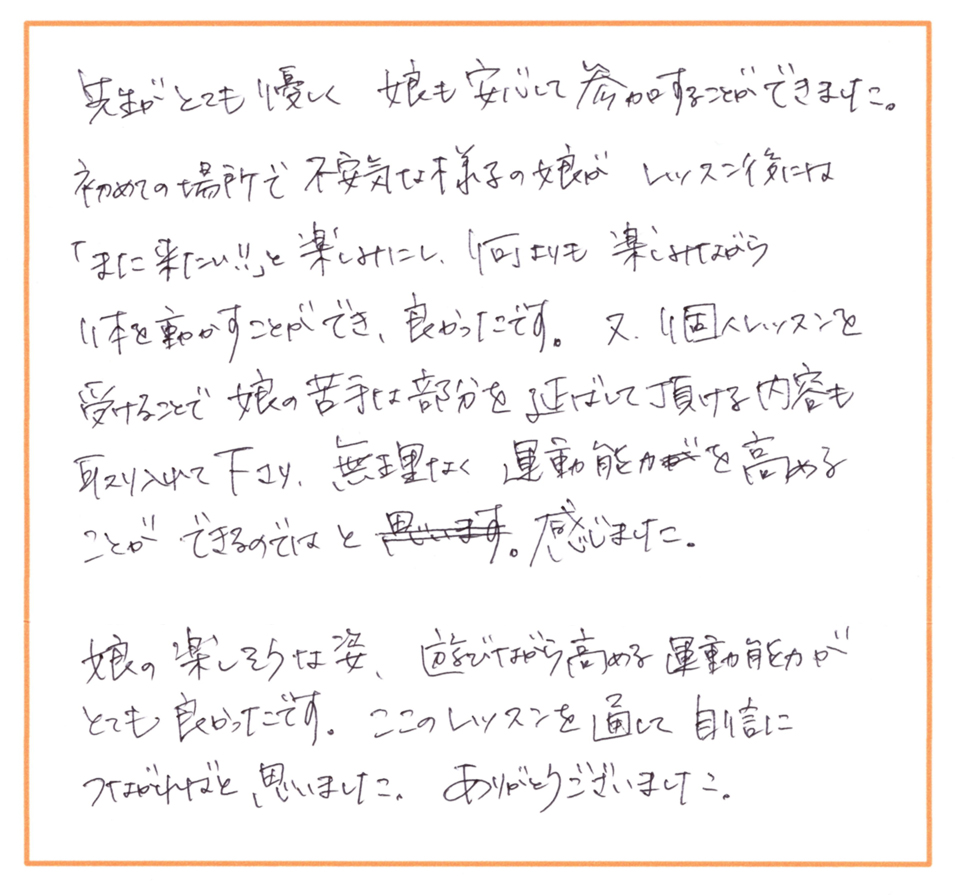 先生がとても優しく 娘も安心して参加することができました。
初めての場所で不安気な様子の娘が レッスン後には
「また来たい!!」と楽しみにし、何よりも楽しみながら
体を動かすことができ、良かったです。又、個人レッスンを
受けることで娘の苦手な部分を延ばして頂ける内容も
取り入れて下さり、無理なく運動能力を高める
ことができるのではと思います。感じました。
娘の楽しそうな姿、遊びながら高める運動能力が
とても良かったです。ここのレッスンを通して自信に
つながればと思いました。ありがとうございました。